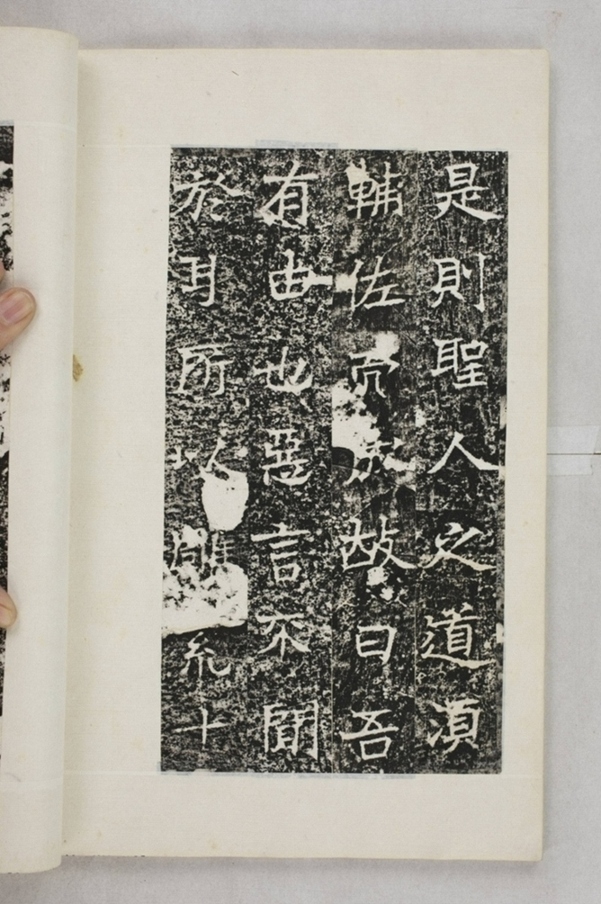 是則聖人之道湏
輔佐而成故曰吾
有由也惡言不聞
於耳所以雕十